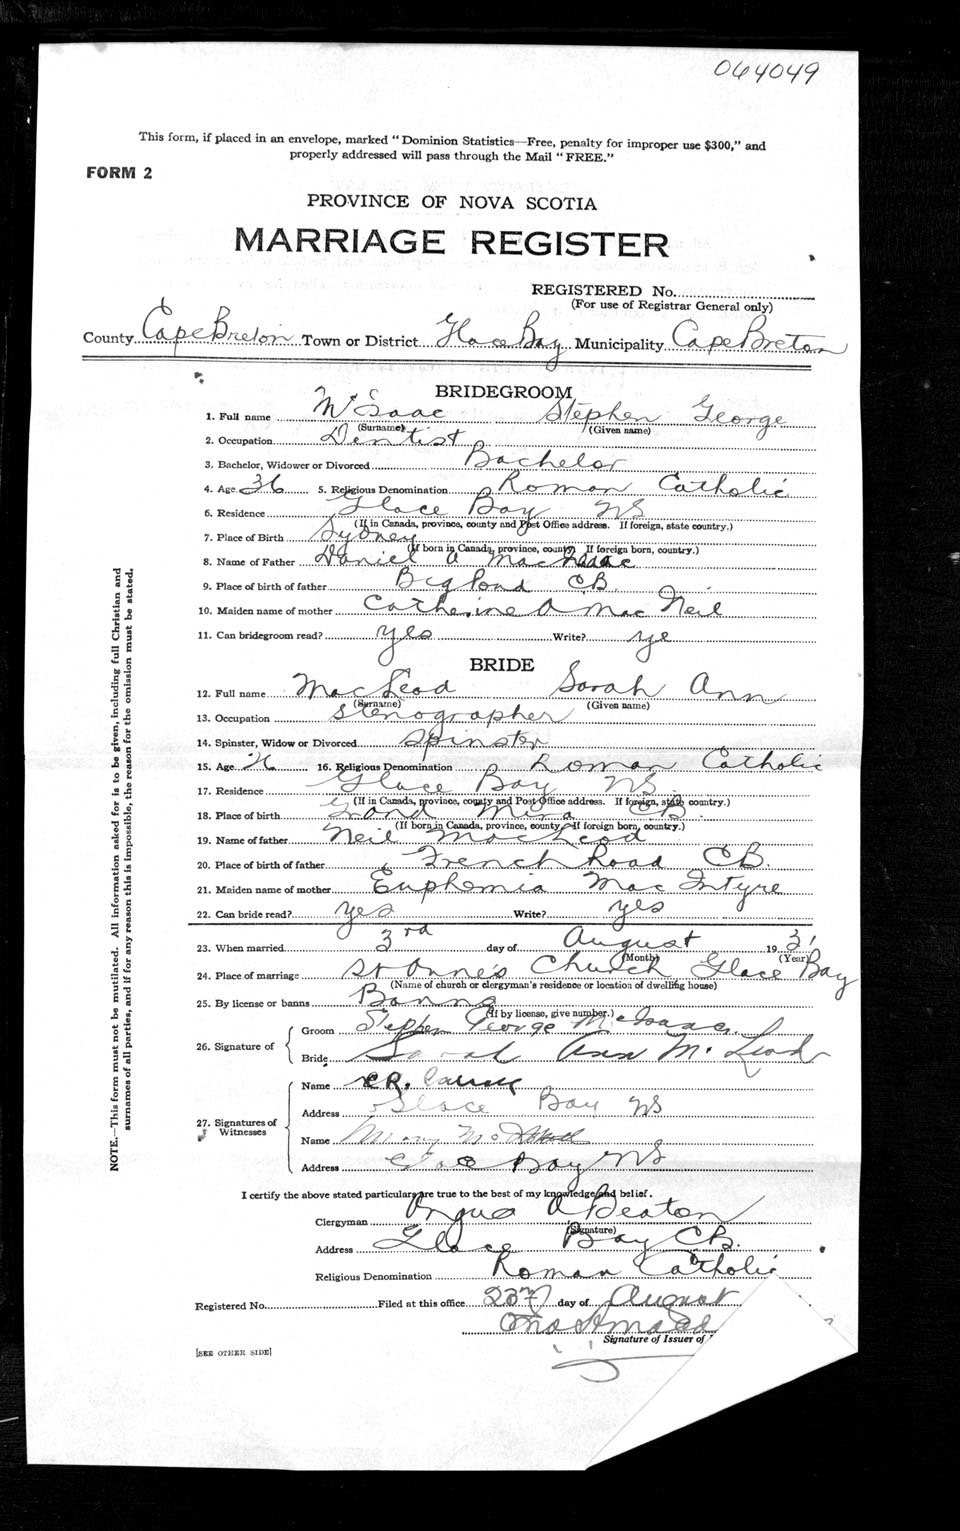 064049
This form, if placed in an envelope, marked "Dominion Statistics—Free, penalty for improper use $300," and
properly addressed will pass through the Mail "FREE."
FORM 2
PROVINCE OF NOVA SCOTIA
MARRIAGE REGISTER
REGISTERED No.
(For use of Registrar General only)
County Cape Breton Town or District Glace Bay Municipality Cape Breton
BRIDEGROOM
1. Full name McIsaac Stephen George
(Surname) (Given name)
2. Occupation Dentist
3. Bachelor, Widower or Divorced Bachelor
4. Age 36 5. Religious Denomination Roman Catholic
6. Residence Glace Bay NS
(If in Canada, province, county and Post Office address. If foreign, state country.)
7. Place of Birth Sydney
(If born in Canada, province, county. If foreign born, country.)
8. Name of Father Daniel A MacIsaac
9. Place of birth of father Big Pond CB.
10. Maiden name of mother Catherine A MacNeil
11. Can bridegroom read? yes Write? ye
BRIDE
12. Full name MacLeod Sarah Ann
(Surname) (Given name)
13. Occupation Stenographer
14. Spinster, Widow or Divorced Spinster
15. Age 16. Religious Denomination Roman Catholic
17. Residence Glace Bay NS.
(If in Canada, province, county and Post Office address. If foreign, state country.)
18. Place of birth Grand Mira CB.
(If born in Canada, province, county. If foreign born, country.)
19. Name of father Neil MacLeod
20. Place of birth of father French Road CB.
21. Maiden name of mother Euphemia MacIntyre
22. Can bride read? yes Write? yes
23. When married 3rd day of August 1931
(Month) (Year)
24. Place of marriage St Anne's Church Glace Bay
(Name of church or clergyman's residence or location of dwelling house)
25. By license or banns Banns
(If by license, give number.)
26. Signature of
Groom Stephen George McIsaac
Bride Sarah Ann McLeod
27. Signatures of Witnesses
Name C.R.
Address Glace Bay NS
Name Mary
Address Glace Bay NS
I certify the above stated particulars are true to the best of my knowledge and belief.
Clergyman Angus A Beaton
(Signature)
Address Glace Bay CB.
Religious Denomination Roman Catholic
Registered No. Filed at this office day of August
Signature of Issuer of
[SEE OTHER SIDE]
NOTE.—This form must not be mutilated. All information asked for is to be given, including full Christian and
surnames of all parties, and if for any reason this is impossible, the reason for the omission must be stated.